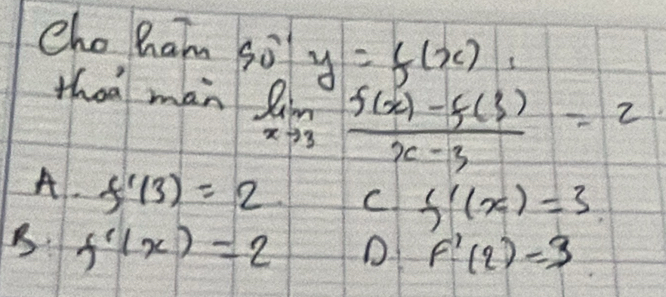 Cho hàm số y = f(x).
thoả mãn lim x→3 (f(x) - f(3))/(x - 3) = 2
A. f'(3) = 2 C. f'(x) = 3.
B. f'(x) = 2 D. f'(2) = 3.